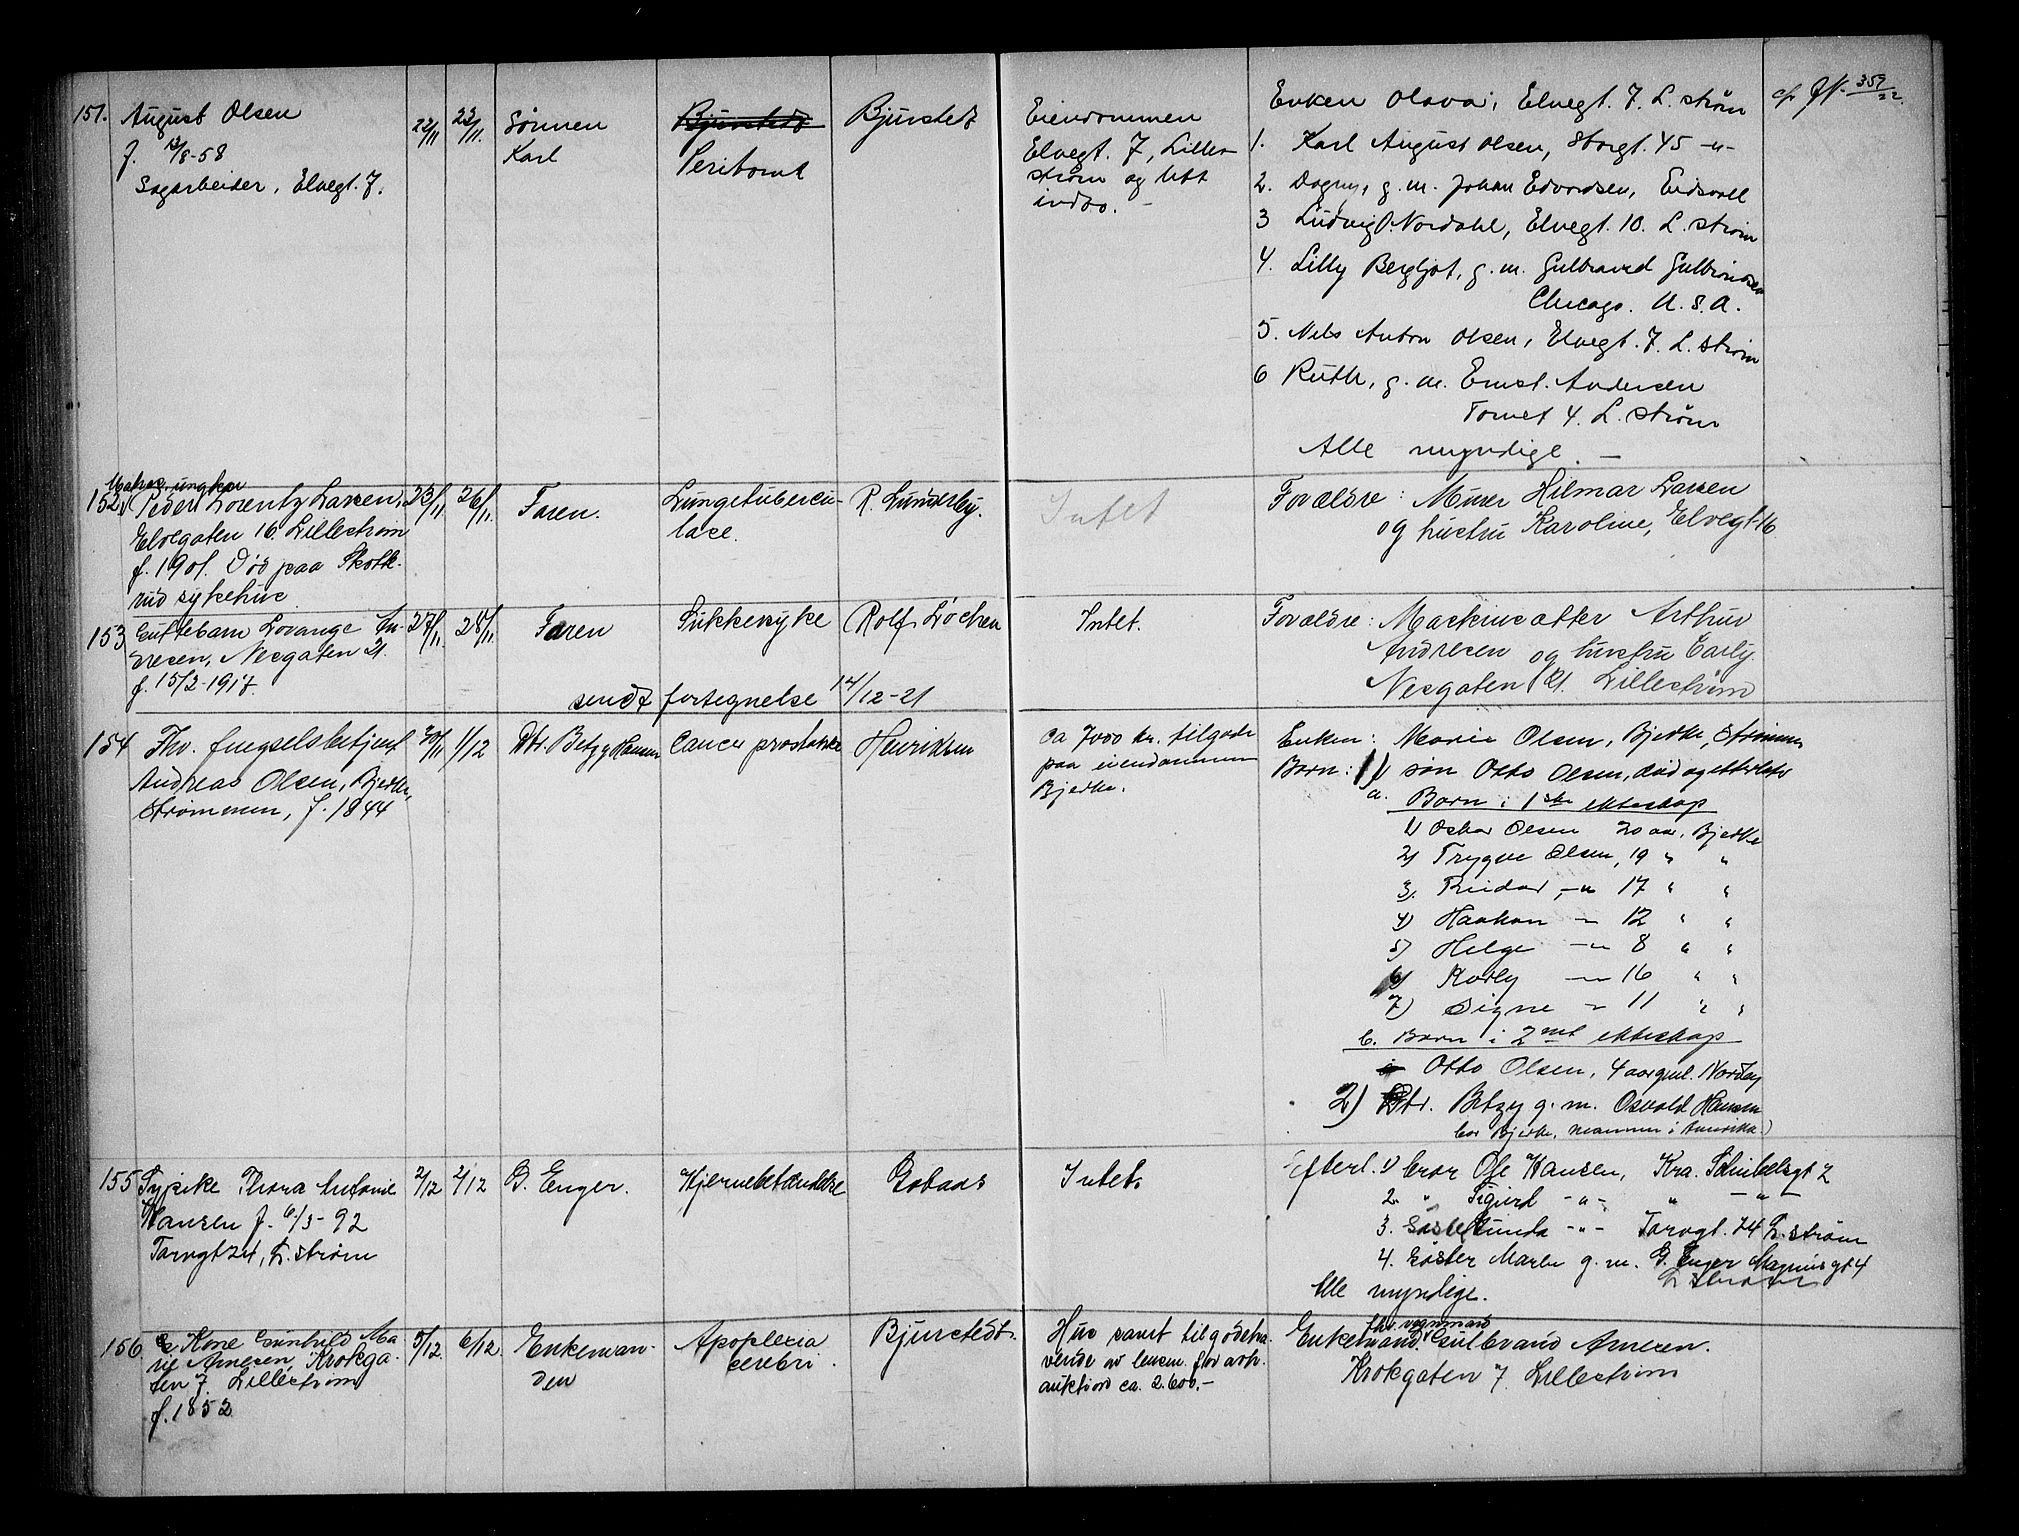 151.
August Olsen
f. 12/8-58
Sagarbeider, Elvegt. 7.
22/11
23/11.
Sønnen
Karl
Bjurstedt
Peritonit
Bjurstedt
Eiendommen
Elvegt. 7, Lille-
strøm og litt
indbo. -
Enken Olava, Elvegt. 7. L. strøm
1. Karl August Olsen, Storgt. 45 -"-
2. Dagny, g. m. Johan Edvardsen, Eidsvoll
3 Ludvig O. Nordahl, Elvegt. 10. L. strøm
4. Lilly Bergljot, g. m. Gulbrand Gulbrandsen
Chicago. U. S. A.
5. Nels Anton Olsen, Elvegt. 7. L. strøm
6 Ruth, g. m. Ernst. Andersen
Torvet 4. L. strøm
Alle myndige. -
cfr 359/22
152.
ungkar
Peder Lorentz Larsen,
Elvegaten 16. Lillestrøm
f. 1901. Død paa Skotte-
rud sykehus
23/11
26/11.
Faren.
Lungetubercu-
lose.
R. Lunderby.
Intet
Forældre: Murer Hilmar Larsen
og hustru Karoline, Elvegt. 16
153
Guttebarn Lovange An-
dresen, Nesgaten 21.
f. 15/2-1917.
27/11
28/11.
Faren
Sukkersyke
Rolf Lochen
Intet.
Forældre: Maskinsatter Arthur
Andresen og hustru Carly.
Nesgaten 21. Lillestrøm
sendt fortegnelse 14/12-21
154
Fhv. fengselsbetjent
Andreas Olsen, Bjerke,
Strømmen, f. 1844
30/11
1/12
Dtr. Betzy Hansen
Cancer prostatae
Henriksen
ca 7000 kr. tilgode
paa eiendommen
Bjerke.
Enken: Marie Olsen, Bjerke, Strømmen
Barn: 1) søn Otto Olsen, død og etterlatt
a. Barn i 1ste ekteskap
1) Oskar Olsen 20 aar, Bjerke
2) Trygve Olsen, 19 " "
3. Reidar, -" 17 " "
4) Haakon -" 12 " "
5) Helge -" 8 " "
6) Korly -" 16 " "
7) Signe -" 11 " "
b. Barn i 2net ekteskap
Otto Olsen, 4 aar gml. Nordby
2) Dtr. Betzy g. m. Osvald Hansen
bor Bjerke, mannen i Amerika.)
155
Sypike Thora Antonie
Hansen f. 6/3-92
Torvgt 24, L. strøm
2/12
2/12
G. Enger.
Hjernebetændelse
Gobaas
Intet.
Efterl. 1) bror Ole Hansen, Kra. Schubelsgt 2
2. " Sigurd -"- " -"-
3. Søster Gunda -"- Torvgt. 24 L. strøm
4. Søster Marte g. m. G. Enger Magnusgt 4
L. strøm
Alle myndige.
156
Kone Gunhild Ma-
rie Arnesen, Krokga-
ten 7. Lillestrøm
f. 1852
5/12.
6/12.
Enkeman-
den
Apoplexia
cerebri.
Bjurstedt.
Hus samt tilgodeha-
vende av lensm. for avh.
auktion ca. 2.600.-
Enkemand fhv. vognmand Gulbrand Arnesen.
Krokgaten 7. Lillestrøm